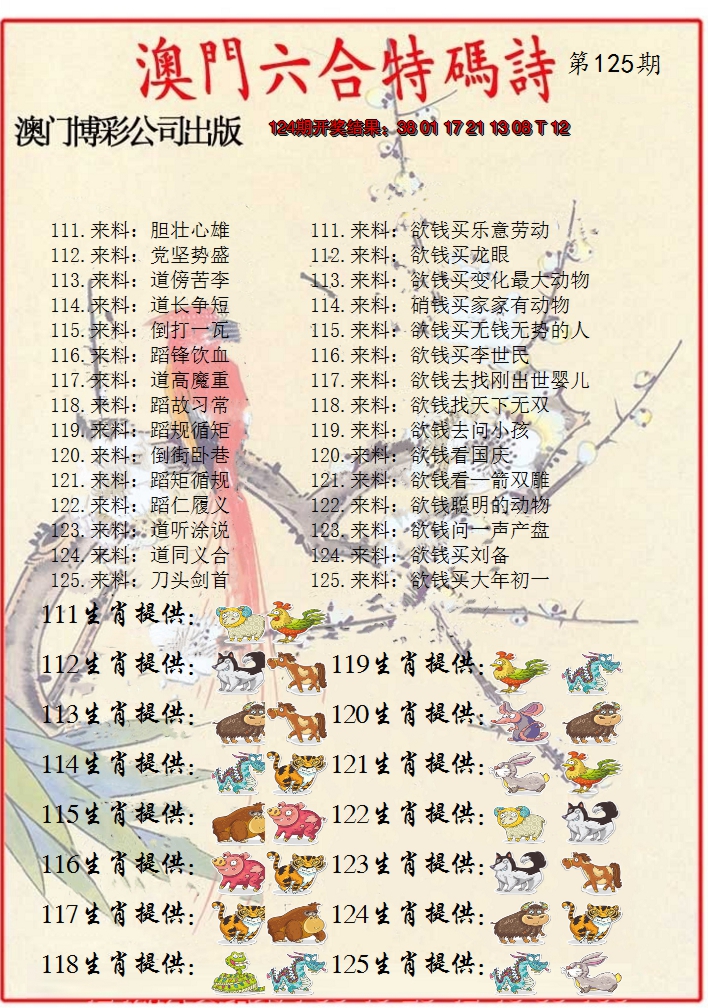 澳門六合特碼詩 第125期
澳门博彩公司出版 124期开奖结果：38 01 17 21 13 08 T 12
111.来料：胆壮心雄 111.来料：欲钱买乐意劳动
112.来料：党坚势盛 112.来料：欲钱买龙眼
113.来料：道傍苦李 113.来料：欲钱买变化最大动物
114.来料：道长争短 114.来料：硝钱买家家有动物
115.来料：倒打一瓦 115.来料：欲钱买无钱无势的人
116.来料：蹈锋饮血 116.来料：欲钱买李世民
117.来料：道高魔重 117.来料：欲钱去找刚出世婴儿
118.来料：蹈故习常 118.来料：欲钱找天下无双
119.来料：蹈规循矩 119.来料：欲钱去问小孩
120.来料：倒街卧巷 120.来料：欲钱看国庆
121.来料：蹈矩循规 121.来料：欲钱看一箭双雕
122.来料：蹈仁履义 122.来料：欲钱聪明的动物
123.来料：道听涂说 123.来料：欲钱问一声产盘
124.来料：道同义合 124.来料：欲钱买刘备
125.来料：刀头剑首 125.来料：欲钱买大年初一
111生肖提供：
112生肖提供： 119生肖提供：
113生肖提供： 120生肖提供：
114生肖提供： 121生肖提供：
115生肖提供： 122生肖提供：
116生肖提供： 123生肖提供：
117生肖提供： 124生肖提供：
118生肖提供： 125生肖提供：